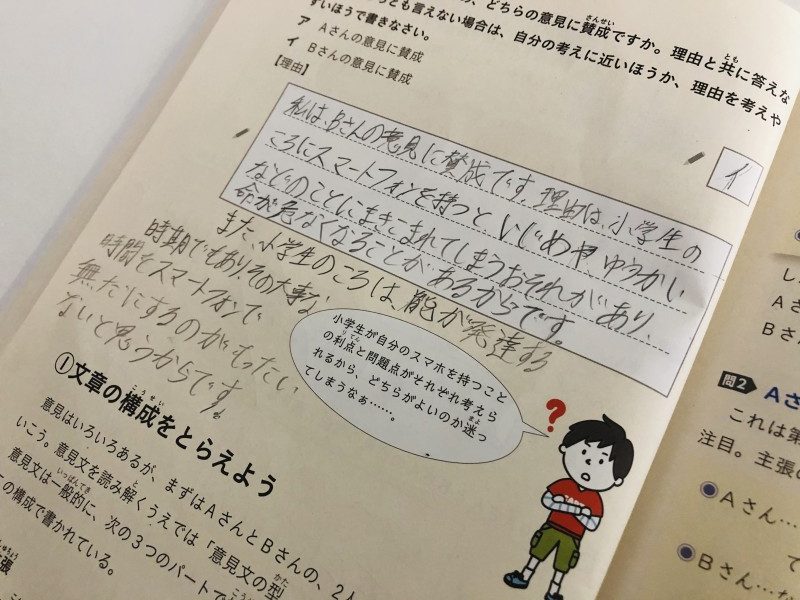 どちらの意見に賛成ですか。理由と共に答えな
さんせい
とも
とも言えない場合は、自分の考えに近いほうか、理由を考えや
すいほうで書きなさい。
ア Aさんの意見に賛成
イ Bさんの意見に賛成
【理由】
イ
私は、Bさんの意見に賛成です。理由は、小学生の
ころにスマートフォンを持つと、いじめや、ゆうかい
などのことにまきこまれてしまうおそれがあり、
命が危なくなることがあるからです。
また、小学生のころは、脳が発達する
時期でもありその大事な
時間をスマートフォンで
無だにするのがもったい
ないと思うからです。
小学生が自分のスマホを持つこと
の利点と問題点がそれぞれ考えら
りてん
れるから、どちらがよいのか迷っ
まよ
てしまうなぁ……。
?
①文章の構成をとらえよう
こうせい
意見はいろいろあるが、まずはAさんとBさんの、2人
いこう。意見文を読み解くうえでは「意見文の型
と
かた
意見文は一般的に、次の3つのパートで
いっぱんてき
の構成で書かれている。
張
しゅちょう
し
Aさ
Bさ
問2
Aさ
これは第
注目。主張の
Aさん…
て
Bさん…な